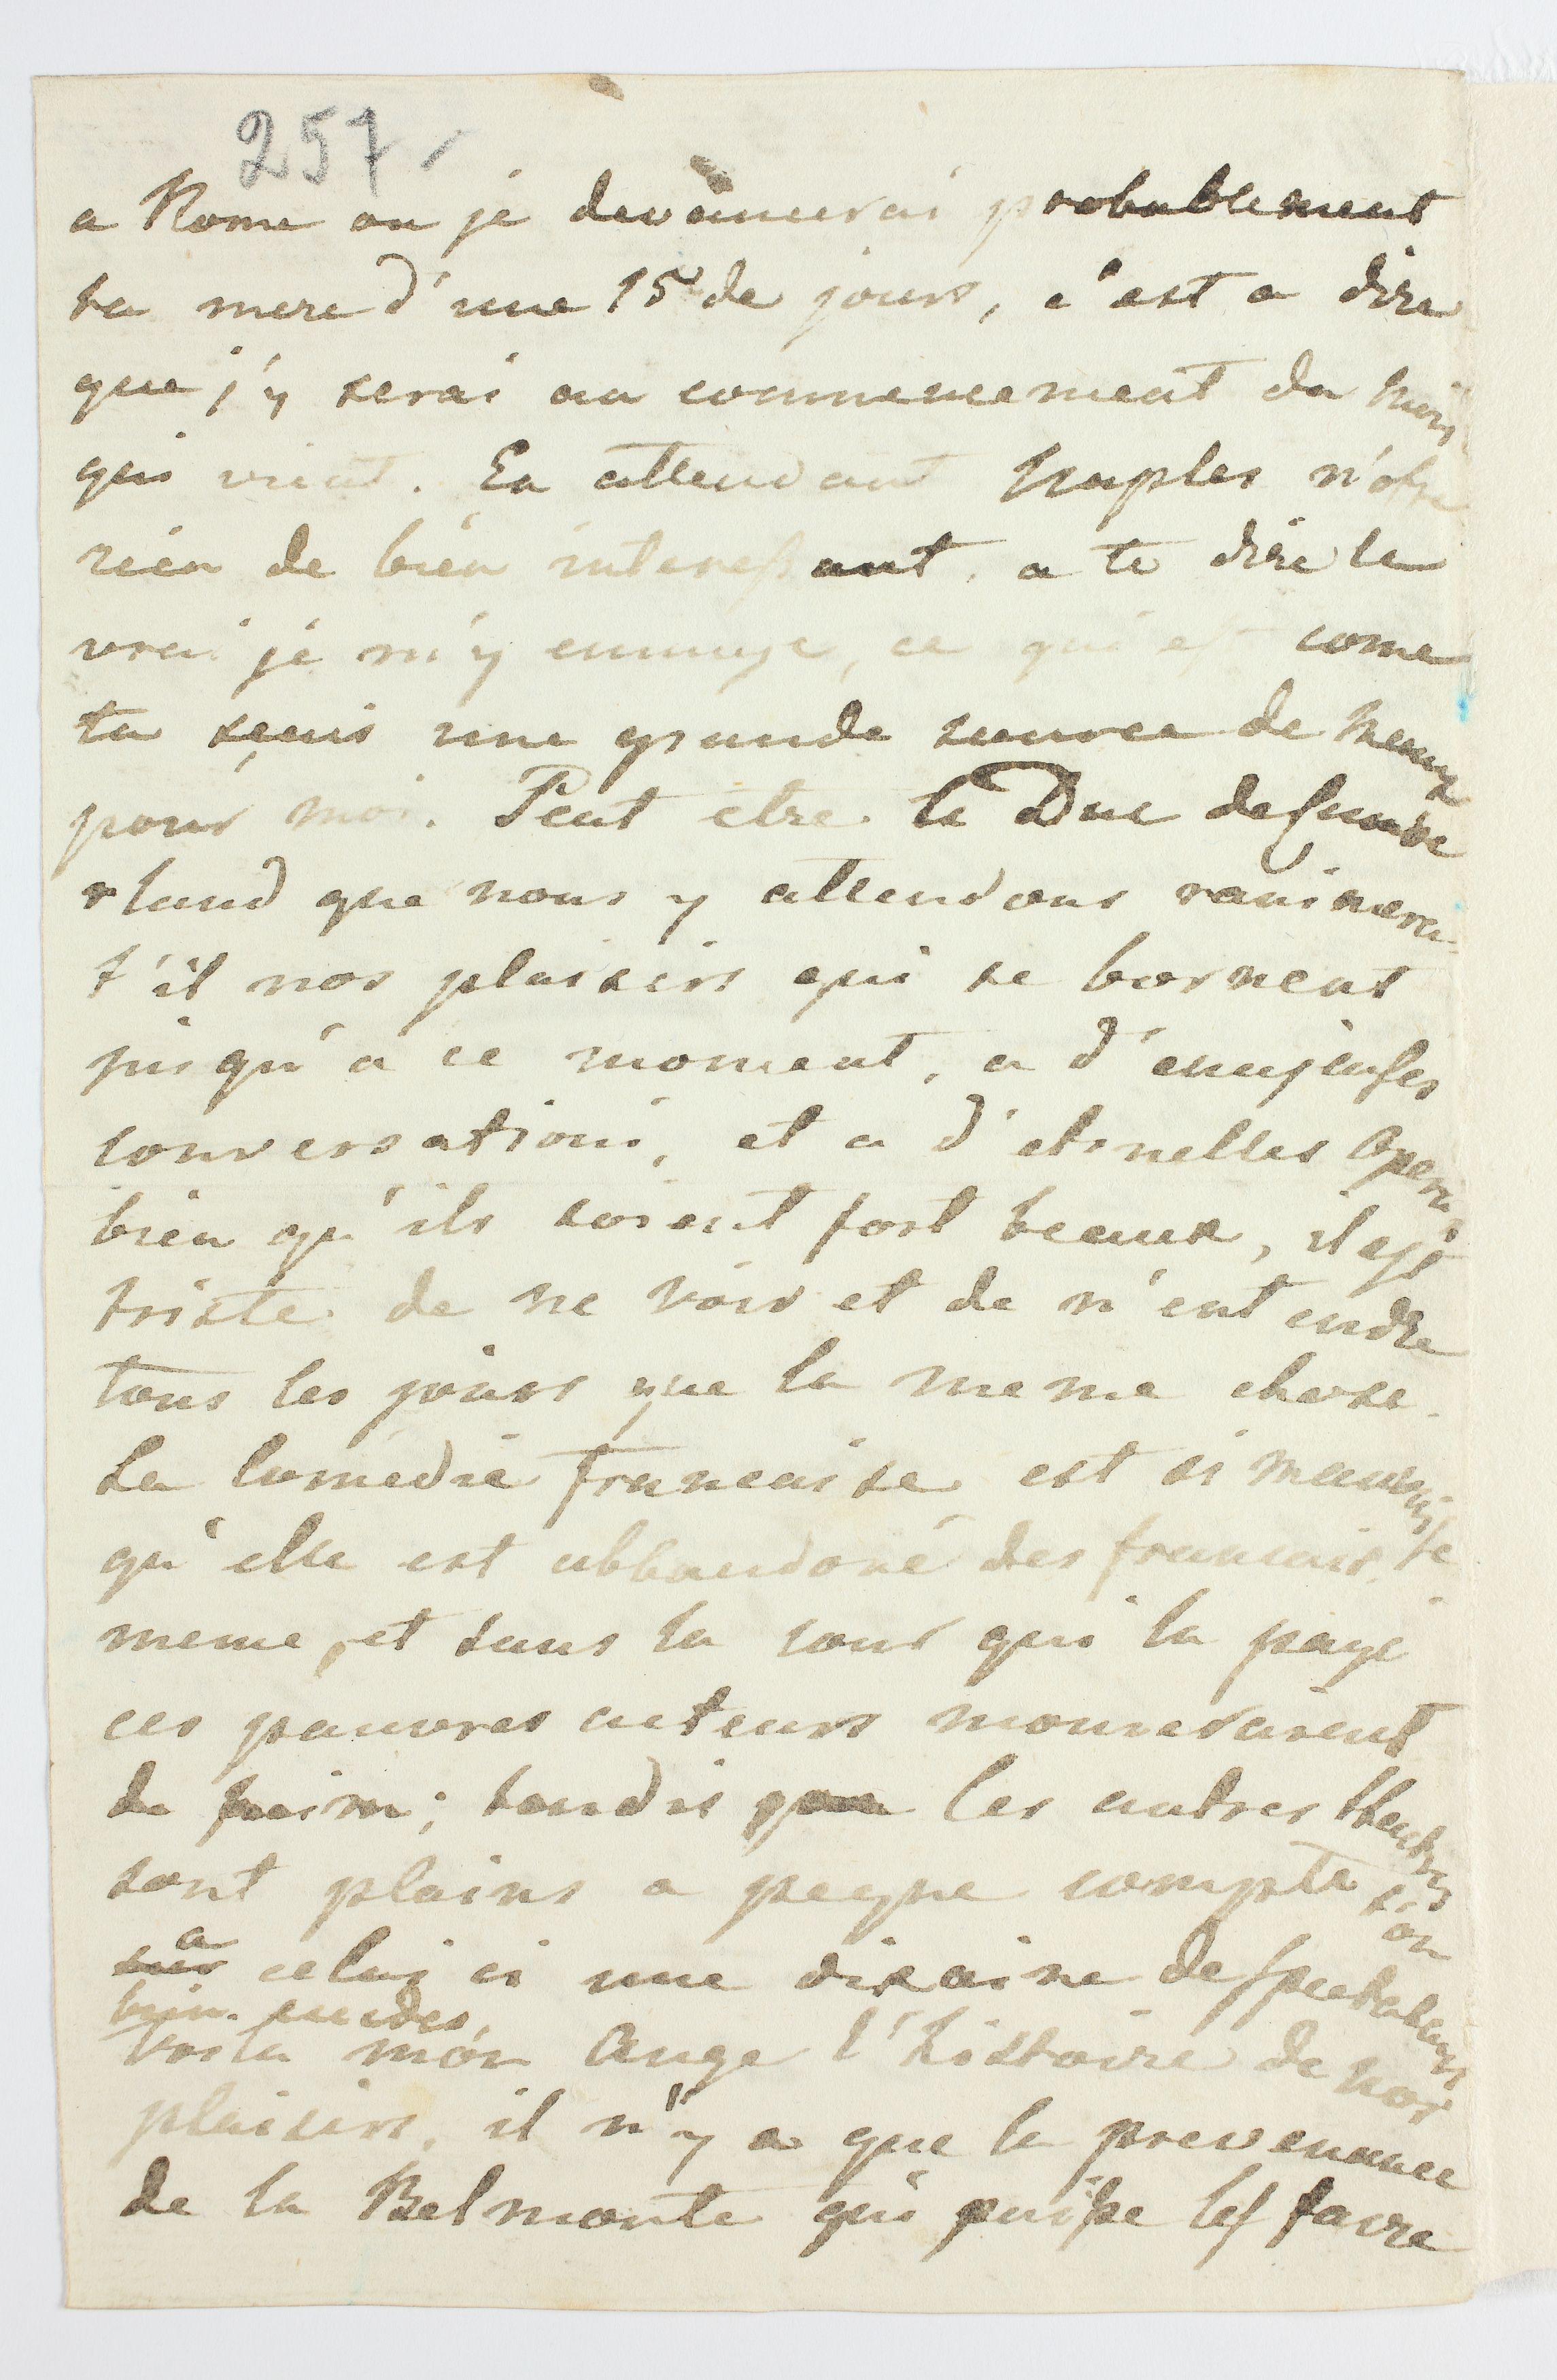 257
a Rome ou je devancerai probablement
ta mere d'une 15de jours, c'est a dire
que j'y serai au commencement du mois
qui vient. En attendant Naples n'ofre
rien de bien interessant, a te dire le
vrai je m'y ennuye, ce qui est come
tu sçais une grande source de Meaux
pour moi. Peut etre le Duc de Cumbe
rland que nous y attendons ranimera-
t'il nos plaisirs qui se bornent
jusqu'a ce moment, a d'enujeuses
conversations, et a d'eternelles Opera
bien qu'ils soient fort beaux, il est
triste de ne voir et de n'entendre
tous les jours que la meme chose.
La Comedie francaise est si mauvaise
qu'elle est abbandoné des francais
meme, et sans la cour qui la paye
ces pauvres acteurs moureraient
de faim; tandis que les autres theatres
sont plains a peyne compte t'on
a celui ci une dixaine de spectateurs
Voila mon Ange l'histoire de nos
plaisirs, il n'y a que la prevenance
de la Belmonte qui puisse les faire